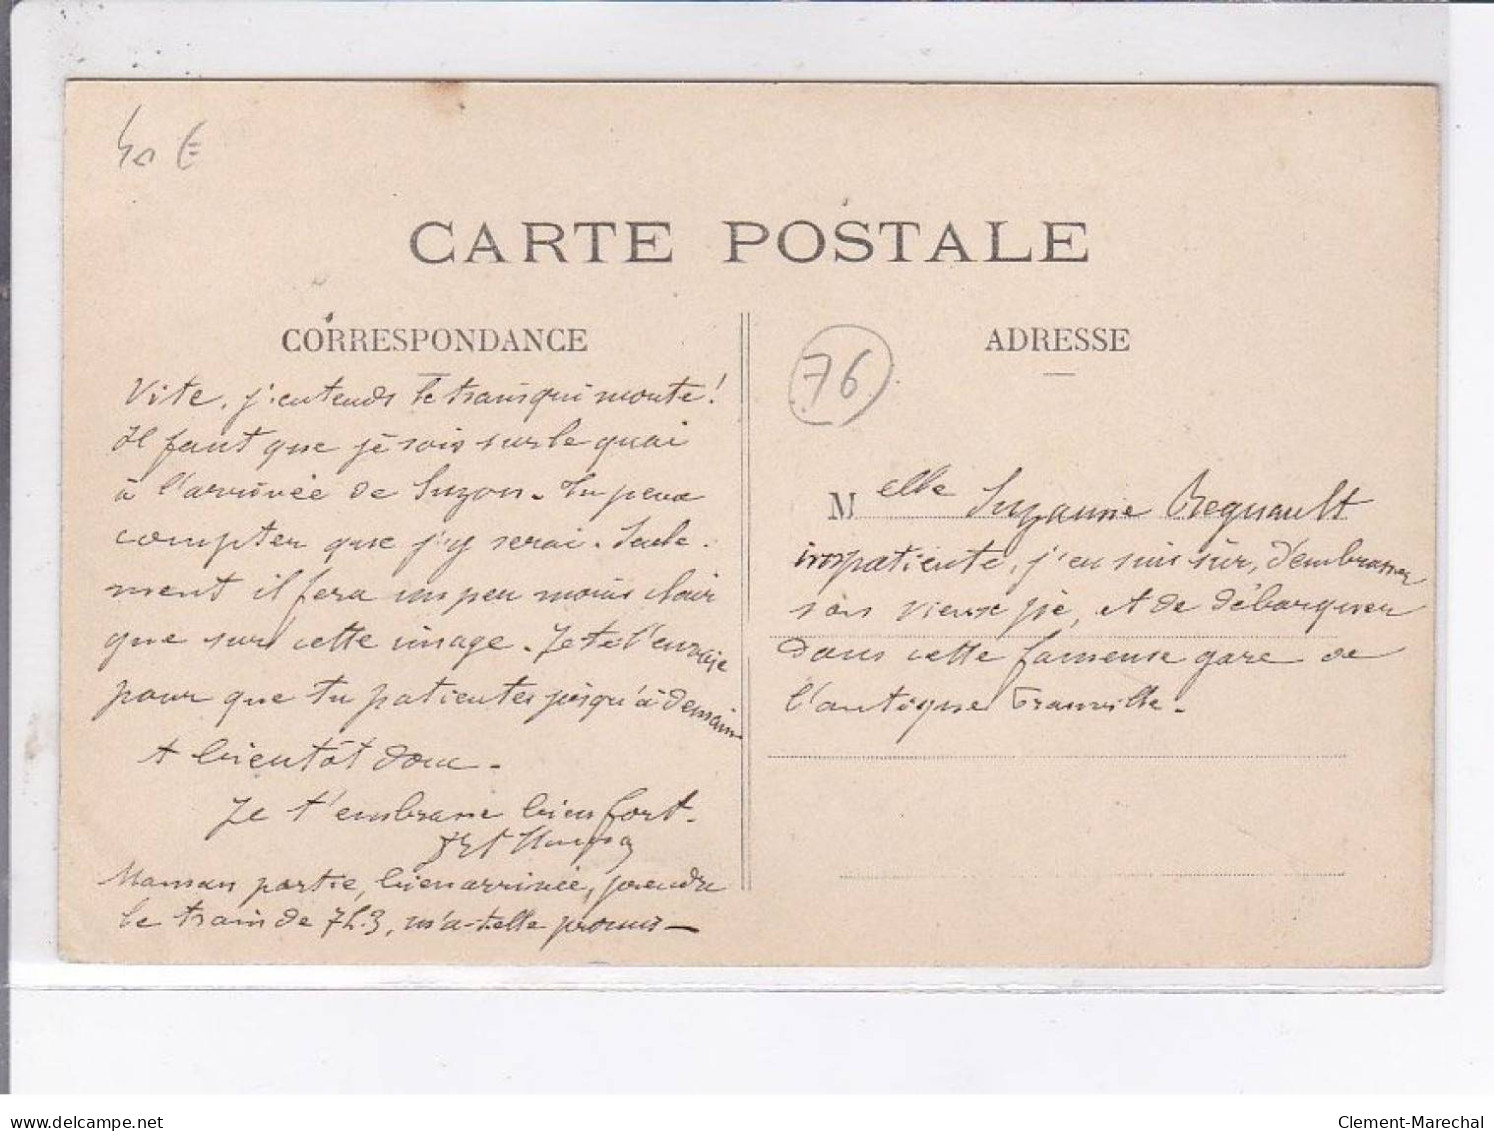 40 €
CARTE POSTALE
CORRESPONDANCE
Vite, j'entends le train qui monte!
Il faut que je sois sur le quai
à l'arrivée de Suzon. Tu peux
compter que j'y serai. Seule-
ment il fera un peu moins clair
que sur cette image. Je te l'envoie
pour que tu patientes jusqu'à demain
A bientôt donc.
Je t'embrasse bien fort.
Maman partie, bien arrivée, prendra
le train de 7h.3, m'a-t-elle promis
76
ADRESSE
Melle Suzanne Regnault
impatiente, j'en suis sûr, d'embrasser
son vieux pé, et de débarquer
dans cette fameuse gare de
l'antique Franville.
delcampe.net
Clement-Marechal